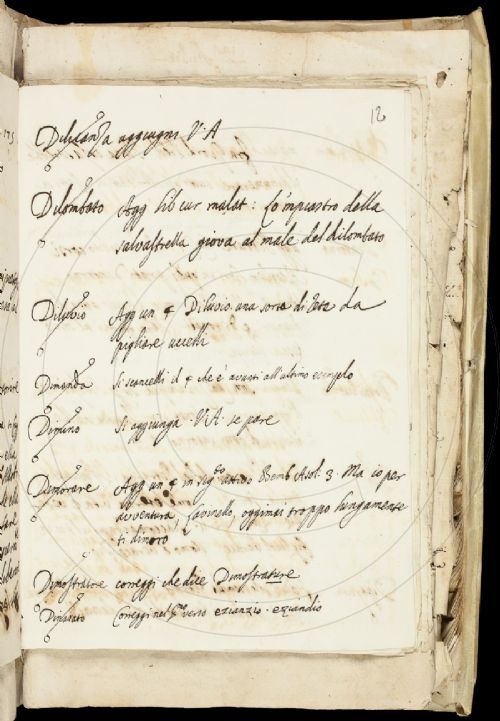 12
Dilicanza aggiugni V. A
Dilombato Agg lib cur malat: Lo'mpiastro della
salvastrella giova al male del dilombato
Diluvio Agg un § Diluvio una sorta di rete da
pigliare uccelli
Dimanda Si scancelli il § che è avanti all'ultimo esemplo
Dimino Si aggiunga V. A. se pare
Dimorare Agg un § in sig.to attivo Bemb Asol. 3. Ma io per
avventura, Lavinello, oggimai troppo lungamente
ti dimoro
Dimostratore correggi che dice Dimostrature
Correggi nel verso ezianzio. eziandio